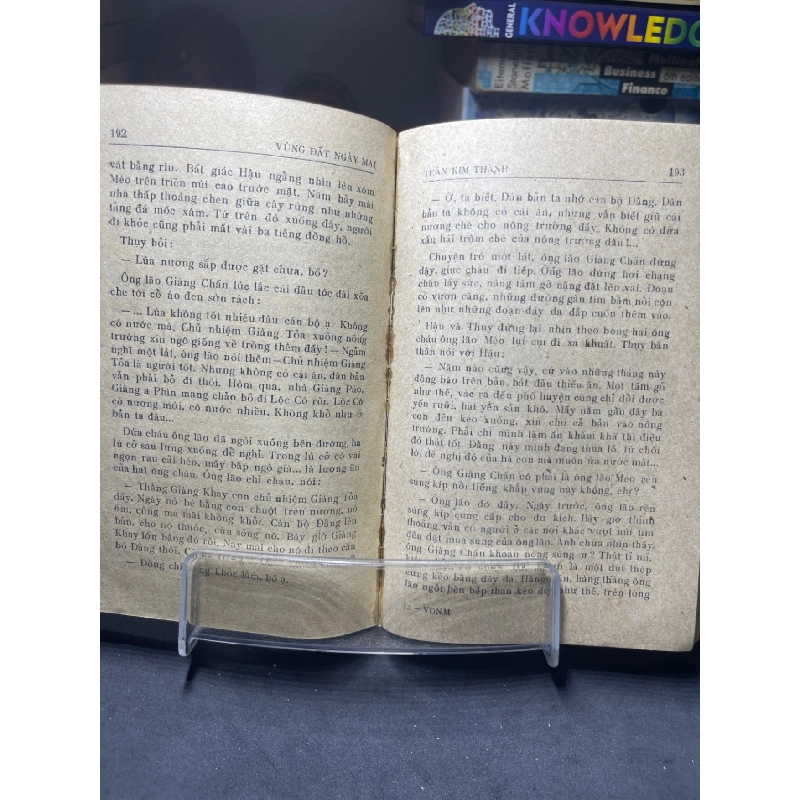 GENERAL KNOWLEDG
Business
Finance
192
VÙNG ĐẤT NGÀY MAI
vát bằng rìu. Bất giác Hậu ngẩng nhìn lên xóm
Mèo trên triền núi cao trước mặt. Năm bảy mái
nhà thấp thoáng chen giữa cây rừng như những
tảng đá mốc xám. Từ trên đó xuống đây, người
đi khỏe cũng phải mất vài ba tiếng đồng hồ.
Thụy hỏi:
— Lúa nương sắp được gặt chưa, bố?
Ông lão Giàng Chấn lúc lắc cái đầu tóc dài xõa
che tới cổ áo đen sờn rách:
—... Lúa không tốt nhiều đâu cán bộ ạ. Không
có nước mà. Chủ nhiệm Giàng Tỏa xuống nông
trường xin ngô giống về trồng thêm đấy! — Ngẫm
nghĩ một lát, ông lão nói thêm — Chủ nhiệm Giàng
Tỏa là người tốt. Nhưng không có cái ăn, dân bản
vẫn phải bỏ đi thôi. Hôm qua, nhà Giàng Páo,
Giàng a Phìn mang chảo bỏ đi Lộc Cô rồi. Lộc Cô
có nương mới, có nước nhiều. Không khô như ở
bản ta đâu...
Đứa cháu ông lão đã ngồi xuống bên đường, hạ
lù cở sau lưng xuống để nghỉ. Trong lù cở có vài
ngọn rau cải héo, mấy bắp ngô già... là lương ăn
của hai ông cháu. Ông lão chỉ cháu, nói:
— Thằng Giàng Khay con chủ nhiệm Giàng Tỏa
đấy. Ngày nó bé bằng con chuột trên nương, nó
ốm, cúng ma mãi không khỏi. Cán bộ Đằng lên
bản, cho nó thuốc, cứu sống nó. Bây giờ Giàng
Khay lớn bằng đó rồi. Nay mai cho nó đi theo cán
bộ Đằng thôi.
— Đồng chí khỏe lắm, bố ạ.
TRẦN KIM THÀNH
193
— Ờ, ta biết. Dân bản ta nhớ cán bộ Đằng. Dân
bản ta không có cái ăn, nhưng vẫn biết giữ cái
nương chè cho nông trường đấy. Không có đứa
xấu hái trộm chè của nông trường đâu!...
Chuyện trò một lát, ông lão Giàng Chấn đứng
dậy, giục cháu đi tiếp. Ông lão đứng hơi chạng
chân lấy sức, nâng tấm gỗ nặng đặt lên vai. Đoạn
cổ vươn căng, những đường gân tím bầm nổi cộn
lên như những đoạn dây da đắp cuốn thêm vào.
Hậu và Thụy đứng lại nhìn theo bóng hai ông
cháu ông lão Mèo lui cui đi xa khuất. Thụy băn
khoăn nói với Hậu:
— Năm nào cũng vậy, cứ vào những tháng này
đồng bào trên bản, bắt đầu thiếu ăn. Một tấm gỗ
như thế, vác ra đến phố huyện cũng chỉ đổi được
yến rưỡi, hai yến sắn khô. Mấy năm gần đây ba
con đến kéo xuống, xin cho cả bản vào nông
trường. Phải chi mình làm ăn khấm khá thì điều
đó thật tốt. Đằng này mình đang thua lỗ, từ chối
lời đề nghị đó của bà con mà muốn ứa nước mắt...
— Ông Giàng Chấn có phải là ông lão Mèo rèn
súng kíp nổi tiếng khắp vùng này không, chị?
— Ông lão đó đấy. Ngày trước, ông lão rèn
súng kíp cung cấp cho du kích. Bây giờ thỉnh
thoảng vẫn có người ở các nơi khác vượt núi tìm
đến đặt mua súng của ông lão. Anh chưa nhìn thấy
ông Giàng Chấn khoan nòng súng ư? Thật tỉ mỉ,
là một dùi thép
cứng kéo bằng dây da. Hàng tuần, hàng tháng ông
lão ngồi bên bếp than kéo như thế, trên lòng
13 — VĐNM